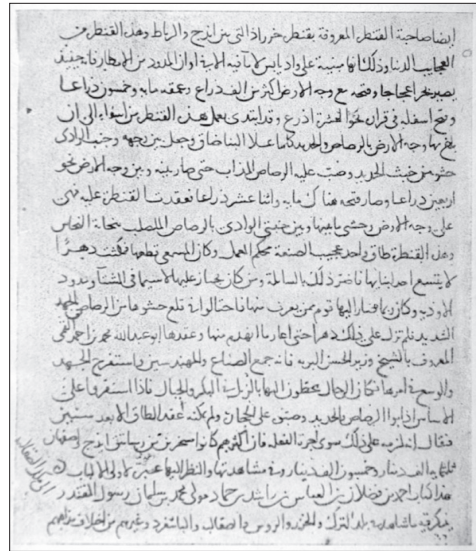 ايضا صاحبة القنطرة المعروفة بقنطرة خرزاد التى بين ايذج والرباط وهذه القنطرة من
عجايب الدنيا وذلك انها مبنية على واد يابس لا ماء فيه الا فى اوان المدود من الامطار فانه حينئذ
يصير بحرا عجاجا وفتحه مع وجه الارض اكثر من الف ذراع وعمقه مايه وخمسون ذراعا
وفتح اسفله فى قراره نحو العشرة اذرع وقد ابتدى بعمل هذه القنطرة من اسفلها الى ان
بلغ بها وجه الارض بالرصاص والحديد كلما علا البنا ضاق وجعل بين وجهه وجنب الوادى
حشو من خبث الحديد وصب عليه الرصاص المذاب حتى صار بينه وبين وجه الارض نحو
اربعين ذراعا وصار فتحه هناك مايه واثنا عشر ذراعا فعقدت القنطرة عليه فهى
على وجه الارض وحشى ما بينها وبين جنبتى الوادى بالرصاص المصلب بنحاتة النحاس
وهذه القنطرة طاق واحد عجيب الصنعة محكم العمل وكان المسمعى قطعها فمكثت دهرا
لا يتسع احد لبنايها فاضر ذلك بالسابلة ومن كان يجتاز عليها لا سيما فى الشتا ومدود
الاودية وكان ربما صار اليها قوم ممن يقرب منها فاحتالوا فى قلع حشوها من الرصاص بالجهد
الشديد فلم تزل على ذلك دهرا حتى اعاد ما انهدم منها وعقدها ابو عبد الله محمد بن احمد القمى
المعروف بالشيخ وزير الحسن بن بويه فانه جمع الصناع والمهندسين واستفرغ الجهد
والوسع فى امرها فكان الرجال يحطون اليها بالزبل فى البكر والحبال فاذا استقروا على
الاساس اذابوا الرصاص والحديد وصبوه على الحجارة ولم يمكنه عقد الطاق الا بعد سنين
فيقال انه لزمه على ذلك سوى اجرة الفعلة فان اكثرهم كانوا مسخرين من رساتيق ايذج واصفهان
ثلثمايه الف دينار وخمسون الف دينار وفى مشاهدتها والنظر اليها عبرة لاولى الالباب
هذا كتاب احمد بن فضلان بن العباس بن راشد بن حماد مولى محمد بن سليمان رسول المقتدر
الى ملك الصقالبة
يذكر فيه ما شاهده فى بلد الترك والخزر والروس والصقالبة والباشغرد وغيرهم من اختلاف مذاهبهم